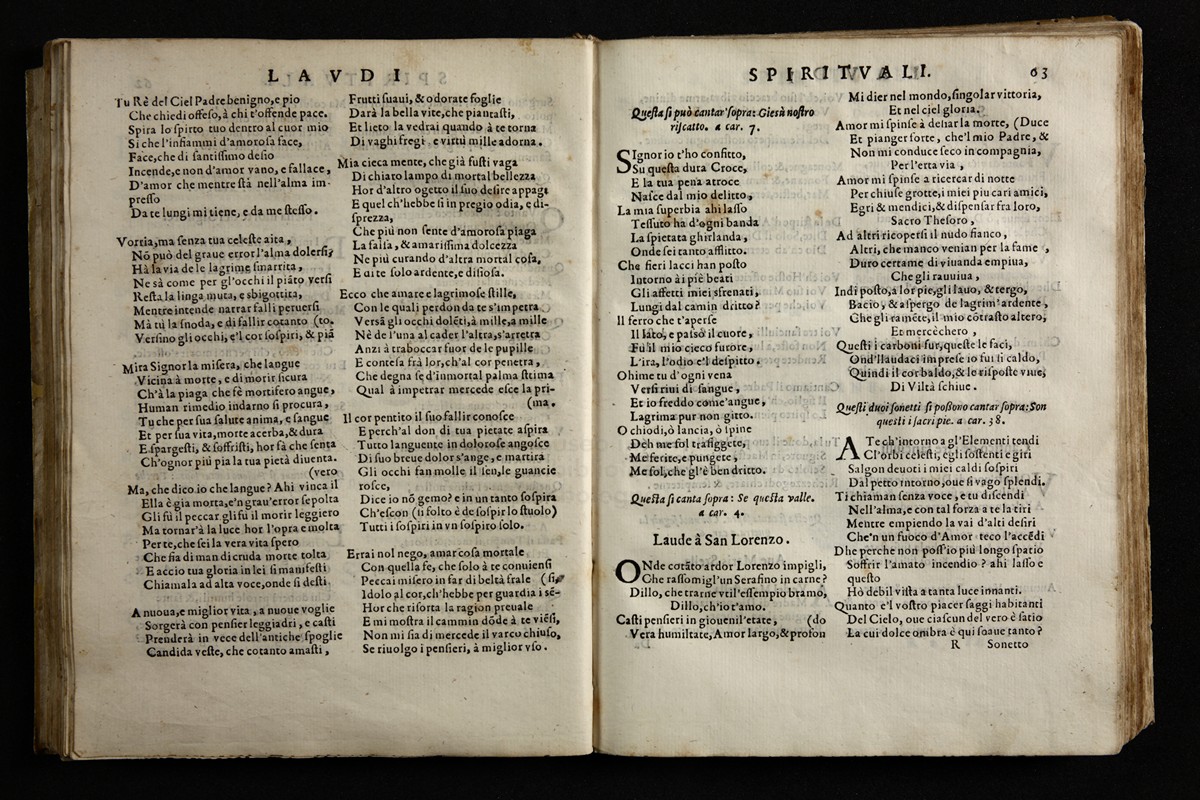 LAVDI
Tu Rè del Ciel Padre benigno, e pio
Che chiedi offeso, à chi t'offende pace.
Spira lo spirto tuo dentro al cuor mio
Si che l'infiammi d'amorosa face,
Face, che di santissimo desio
Incende, e non d'amor vano, e fallace,
D'amor che mentre stà nell'alma im-
presso
Da te lungi mi tiene, e da me stesso.
Vorria, ma senza tua celeste aita,
Nō può del graue error l'alma dolersi,
Hà la via de le lagrime smarrita,
Ne sà come per gl'occhi il piāto versi
Resta la lingua muta, e sbigottita,
Mentre intende narrar falli peruersi
Mà tù la snoda, e di fallir cotanto (to.
Versino gli occhi, e'l cor sospiri, & piā
Mira Signor la misera, che langue
Vicina à morte, e di morir sicura
Ch'à la piaga che fè mortifero angue,
Human rimedio indarno si procura,
Tu che per sua salute anima, e sangue
Et per sua vita, morte acerba, & dura
E spargesti, & soffristi, hor fà che senta
Ch'ognor più pia la tua pietà diuenta.
(vero
Ma, che dico io che langue? Ahi vinca il
Ella è gia morta, e'n grau'error sepolta
Gli fù il peccar gli fu il morir leggiero
Ma tornar'à la luce hor l'opra e molta
Per te, che sei la vera vita spero
Che sia di man di cruda morte tolta
E accio tua gloria in lei si manifesti
Chiamala ad alta voce, onde si desti
A nuoua, e miglior vita, a nuoue voglie
Sorgerà con pensier leggiadri, e casti
Prenderà in vece dell'antiche spoglie
Candida veste, che cotanto amasti,
Frutti suaui, & odorate foglie
Darà la bella vite, che piantasti,
Et lieto la vedrai quando à te torna
Di vaghi fregi e virtù mille adorna.
Mia cieca mente, che già fusti vaga
Di chiaro lampo di mortal bellezza
Hor d'altro ogetto il suo desire appaga
E quel ch'hebbe si in pregio odia, e di-
sprezza,
Che più non sente d'amorosa piaga
La falsa, & amarissima dolcezza
Ne più curando d'altra mortal cosa,
E di te solo ardente, e disiosa.
Ecco che amare e lagrimose stille,
Con le quali perdon da te s'impetra
Versā gli occhi dolēti, à mille, a mille
Nè de l'una al cader l'altra, s'arretra
Anzi à traboccar fuor de le pupille
E contesa frà lor, ch'al cor penetra,
Che degna se d'inmortal palma stima
Qual à impetrar mercede esce la pri-
(ma.
Il cor pentito il suo fallir conosce
E perch'al don di tua pietate aspira
Tutto languente in dolorose angosce
Di suo breue dolor s'ange, e martira
Gli occhi fan molle il sen, le guancie
rosce,
Dice io nō gemo? e in un tanto sospira
Ch'escon (sì folto è de sospir lo stuolo)
Tutti i sospiri in vn sospiro solo.
Errai nol nego, amar cosa mortale
Con quella fe, che solo à te conuiensi
Peccai misero in far di beltà frale (si,
Idolo al cor, ch'hebbe per guardia i sē-
Hor che risorta la ragion preuale
E mi mostra il cammin dōde à te viēsi,
Non mi sia di mercede il varco chiuso,
Se riuolgo i pensieri, à miglior vso.
SPIRITVALI. 63
Questa si può cantar sopra: Giesù nostro
riscatto. a car. 7.
SIgnor io t'ho confitto,
Su questa dura Croce,
E la tua pena atroce
Nasce dal mio delitto,
La mia superbia ahi lasso
Tessuto ha d'ogni banda
La spietata ghirlanda,
Onde sei tanto afflitto.
Che fieri lacci han posto
Intorno ài piè beati
Gli affetti miei sfrenati,
Lungi dal camin dritto?
Il ferro che t'aperse
Il lato, e passò il cuore,
Fù il mio cieco furore,
L'ira, l'odio e'l despitto.
Ohime tu d'ogni vena
Versi riui di sangue,
Et io freddo come'angue,
Lagrima pur non gitto.
O chiodi, ò lancia, ò spine
Deh me sol trafiggete,
Me ferite, e pungete,
Me sol, che gl'è ben dritto.
Questa si canta sopra: Se questa valle.
a car. 4.
Laude à San Lorenzo.
ONde cotāto ardor Lorenzo impigli,
Che rassomigl'un Serafino in carne?
Dillo, che trarne vtil'essempio bramo,
Dillo, ch'io t'amo.
Casti pensieri in giouenil'etate, (do
Vera humiltate, Amor largo, & profon
Mi dier nel mondo, singolar vittoria,
Et nel ciel gloria.
Amor mi spinse à desiar la morte, (Duce
Et pianger forte, che'l mio Padre, &
Non mi conduce seco in compagnia,
Per l'erta via,
Amor mi spinse a ricercar di notte
Per chiuse grotte, i miei piu cari amici,
Egri & mendici, & dispensar fra loro,
Sacro Thesoro,
Ad altri ricopersi il nudo fianco,
Altri, che manco venian per la fame,
Duro certame di viuanda empiua,
Che gli rauuiua,
Indi posto, a lor pie, gli lauo, & tergo,
Bacio, & aspergo de lagrim'ardente,
Che gli ramēte, il mio cōtrasto altero,
Et mercèchero,
Questi i carboni fur, queste le faci,
Ond'l'audaci imprese io fui sì caldo,
Quindi il cor baldo, & le risposte viue,
Di Viltà schiue.
Questi duoi sonetti si possono cantar sopra: Son
questi i sacri pie. a car. 38.
A Te ch'intorno a gl'Elementi tendi
Cl'orbi celesti, egli sostenti e giri
Salgon deuoti i miei caldi sospiri
Dal petto intorno, oue si vago splendi.
Ti chiaman senza voce, e tu discendi
Nell'alma, e con tal forza a te la tiri
Mentre empiendo la vai d'alti desiri
Che'n un fuoco d'Amor teco l'accēdi
Dhe perche non poss'io più longo spatio
Soffrir l'amato incendio? ahi lasso e
questo
Hò debil vista a tanta luce innanti.
Quanto e'l vostro piacer saggi habitanti
Del Cielo, oue ciascun del vero è satio
La cui dolce ombra è qui soaue tanto?
R Sonetto